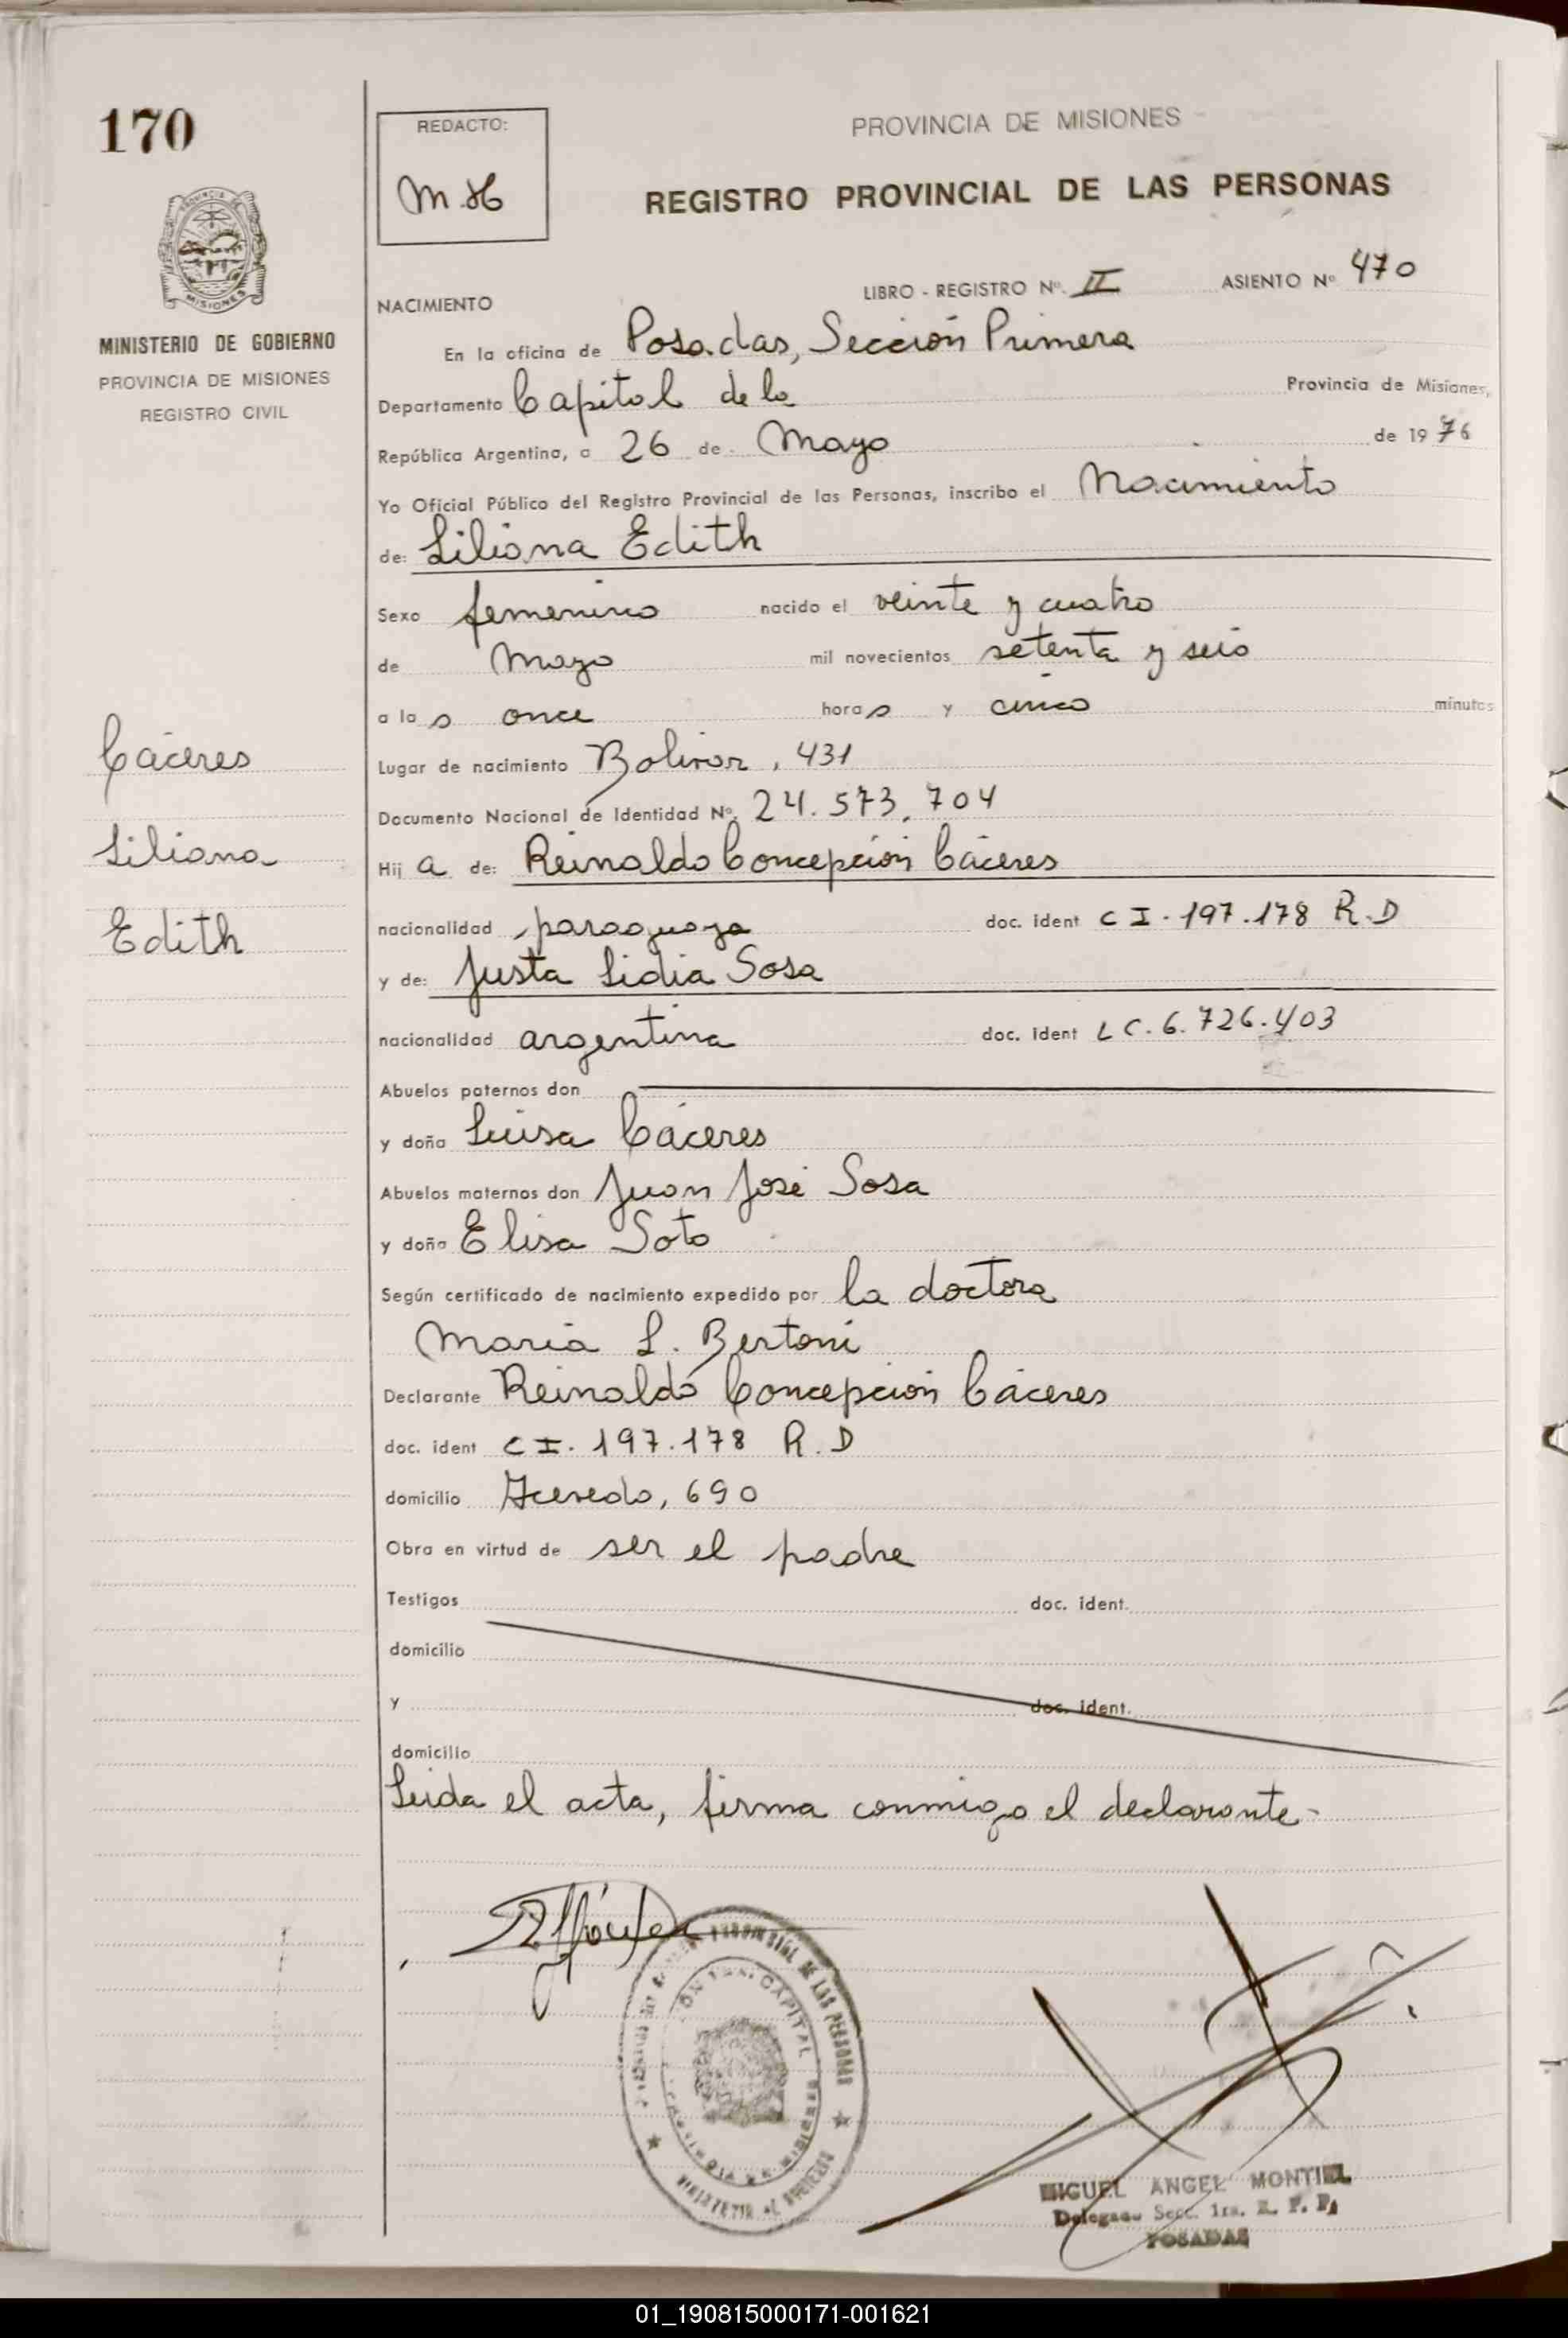 170
REDACTO:
M.H
PROVINCIA DE MISIONES
REGISTRO PROVINCIAL DE LAS PERSONAS
PROVINCIA DE
MISIONES
MINISTERIO DE GOBIERNO
PROVINCIA DE MISIONES
REGISTRO CIVIL
NACIMIENTO
LIBRO - REGISTRO Nº. II ASIENTO Nº 470
En la oficina de Posadas, Sección Primera
Departamento Capital de la Provincia de Misiones,
República Argentina, a 26 de Mayo de 1976
Yo Oficial Público del Registro Provincial de las Personas, inscribo el Nacimiento
de: Liliana Edith
Sexo femenino nacido el veinte y cuatro
de Mayo mil novecientos setenta y seis
a las once horas y cinco minutos
Cáceres
Liliana
Edith
Lugar de nacimiento Bolivar, 431
Documento Nacional de Identidad Nº. 24.573.704
Hij a de: Reinaldo Concepción Cáceres
nacionalidad paraguaya doc. ident C I. 197.178 R.D
y de: Justa Lidia Sosa
nacionalidad argentina doc. ident L C. 6.726.403
Abuelos paternos don
y doña Luisa Cáceres
Abuelos maternos don Juan José Sosa
y doña Elisa Soto
Según certificado de nacimiento expedido por la doctora
Maria L. Bertoni
Declarante Reinaldo Concepción Cáceres
doc. ident C I. 197.178 R.D
domicilio Acevedo, 690
Obra en virtud de ser el padre
Testigos doc. ident.
domicilio
y doc. ident.
domicilio
Leida el acta, firma conmigo el declarante-
PROVINCIAL DE LAS PERSONAS
CAPITAL
MIGUEL ANGEL MONTIEL
Delegado Secc. 1ra. R. P. P.
POSADAS
01_190815000171-001621